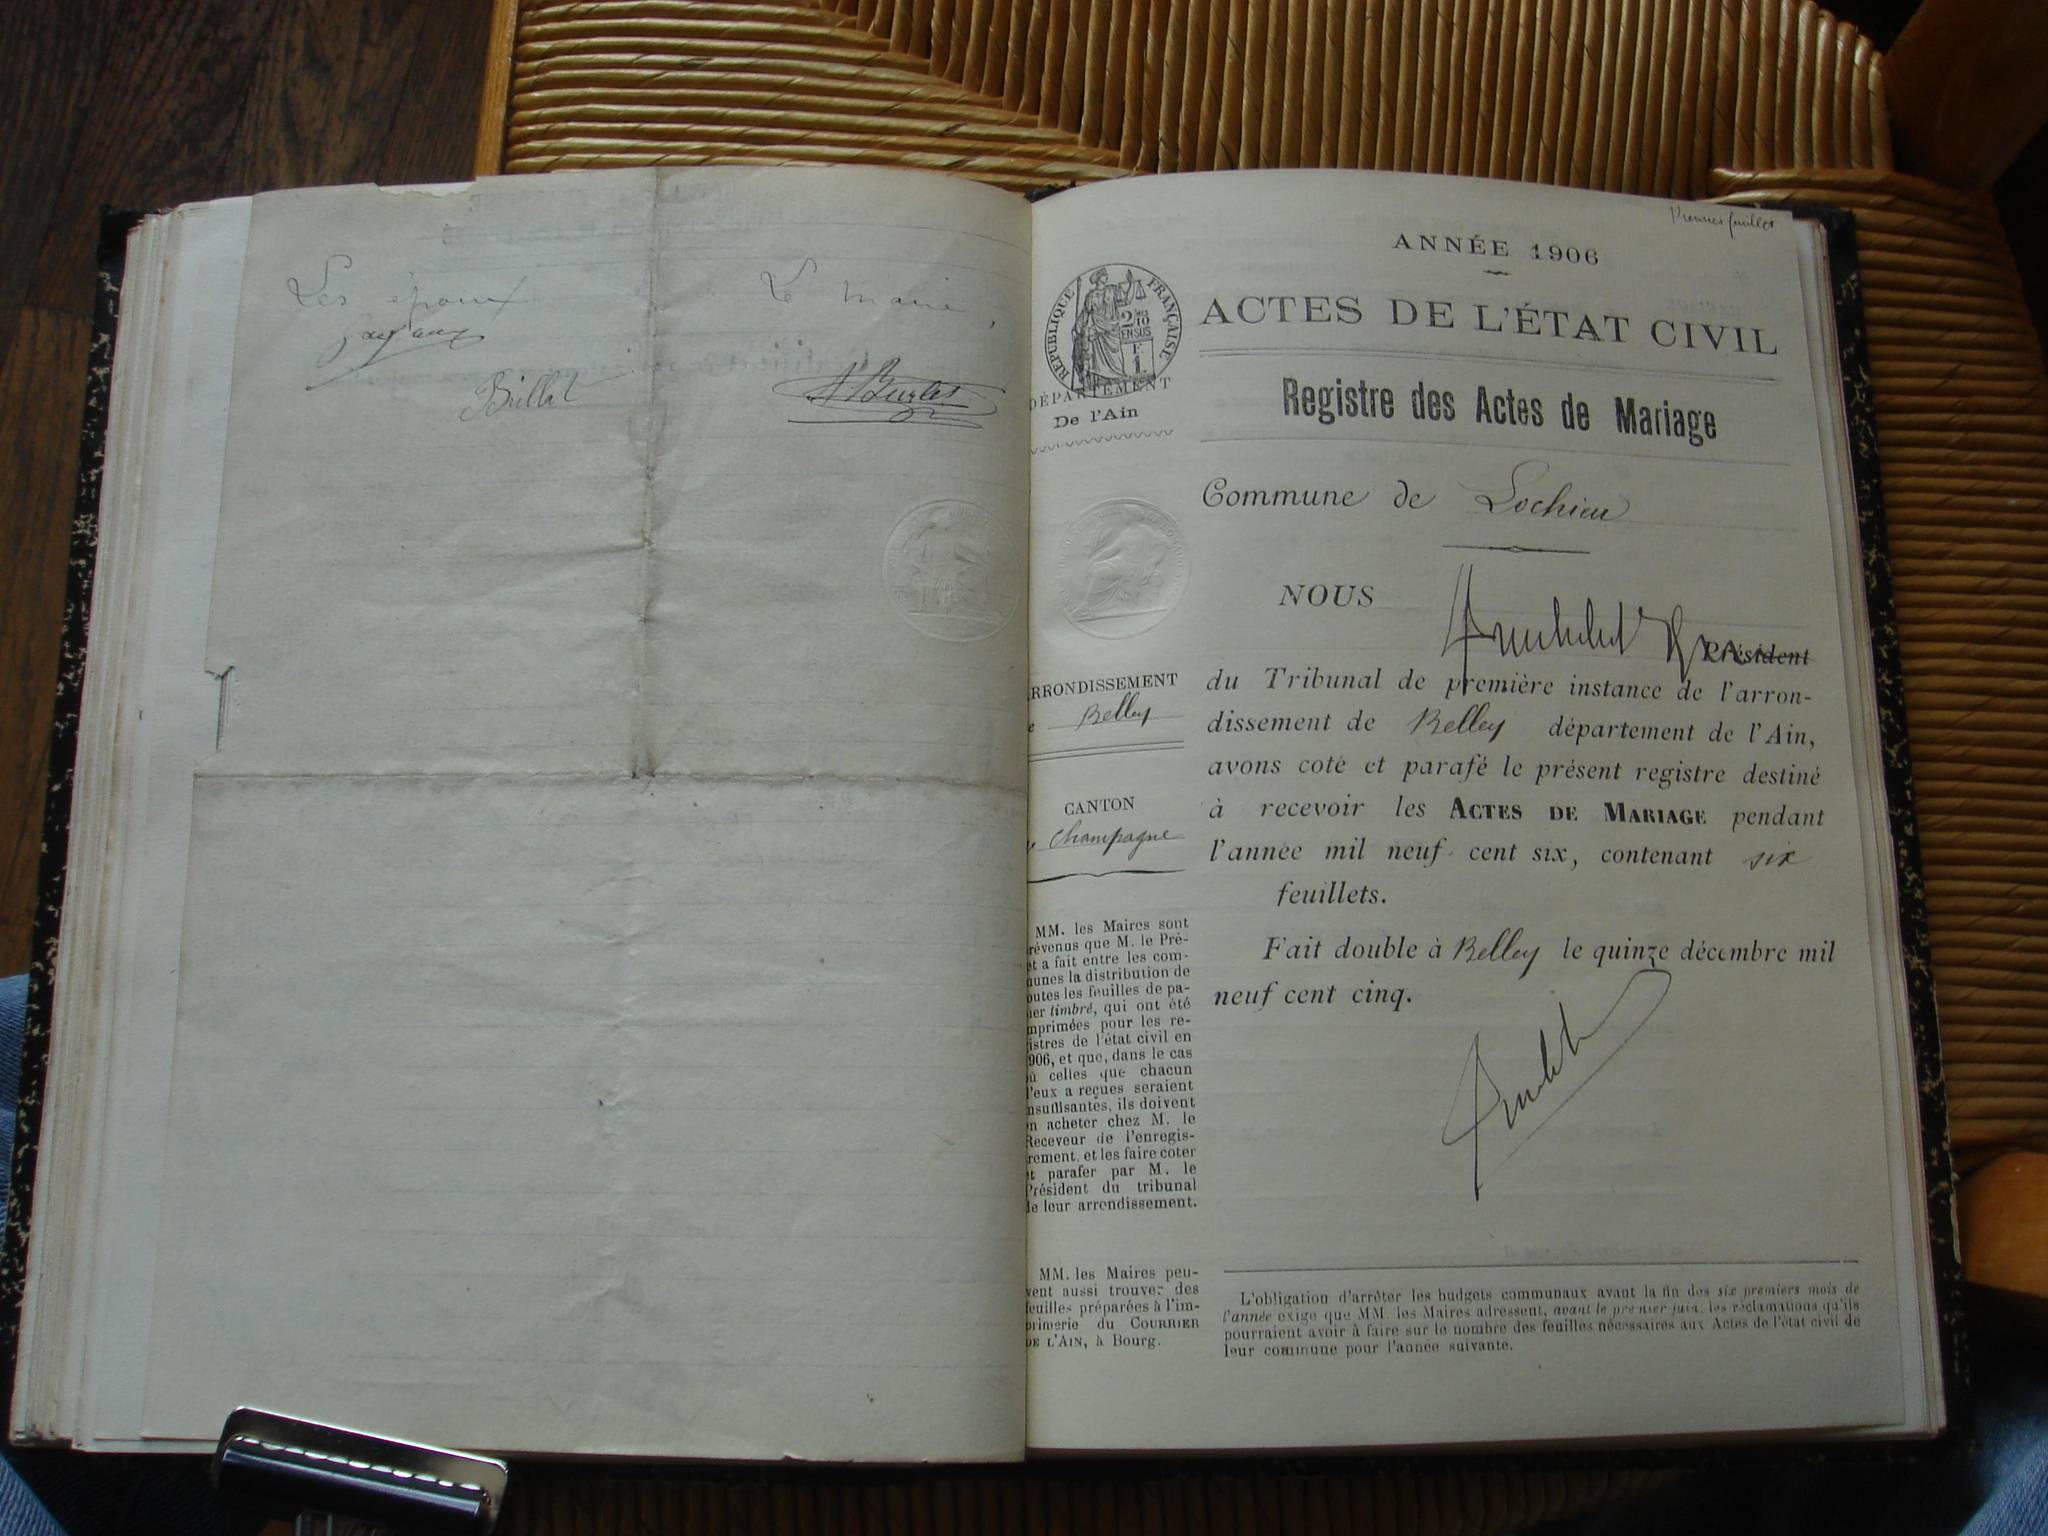 Les époux
Le maire,
Billet
Premier feuillet
ANNÉE 1906
RÉPUBLIQUE FRANÇAISE
2/10
EN SUS
F
1
DÉPARTEMENT
De l'Ain
ACTES DE L'ÉTAT CIVIL
Registre des Actes de Mariage
Commune de Lochieu
ARRONDISSEMENT
e Belley
CANTON
e Champagne
MM. les Maires sont
révenus que M. le Pré-
et a fait entre les com-
munes la distribution de
outes les feuilles de pa-
ier timbré, qui ont été
mprimées pour les re-
istres de l'état civil en
906, et que, dans le cas
ù celles que chacun
d'eux a reçues seraient
nsuffisantes, ils doivent
n acheter chez M. le
Receveur de l'enregis-
rement, et les faire coter
t parafer par M. le
Président du tribunal
de leur arrondissement.
MM. les Maires peu-
vent aussi trouver des
feuilles préparées à l'im-
primerie du COURRIER
DE L'AIN, à Bourg.
NOUS
Président
du Tribunal de première instance de l'arron-
dissement de Belley département de l'Ain,
avons coté et parafé le présent registre destiné
à recevoir les ACTES DE MARIAGE pendant
l'année mil neuf cent six, contenant six
feuillets.
Fait double à Belley le quinze décembre mil
neuf cent cinq.
L'obligation d'arrêter les budgets communaux avant la fin des six premiers mois de
l'année exige que MM. les Maires adressent, avant le premier juin, les réclamations qu'ils
pourraient avoir à faire sur le nombre des feuilles nécessaires aux Actes de l'état civil de
leur commune pour l'année suivante.